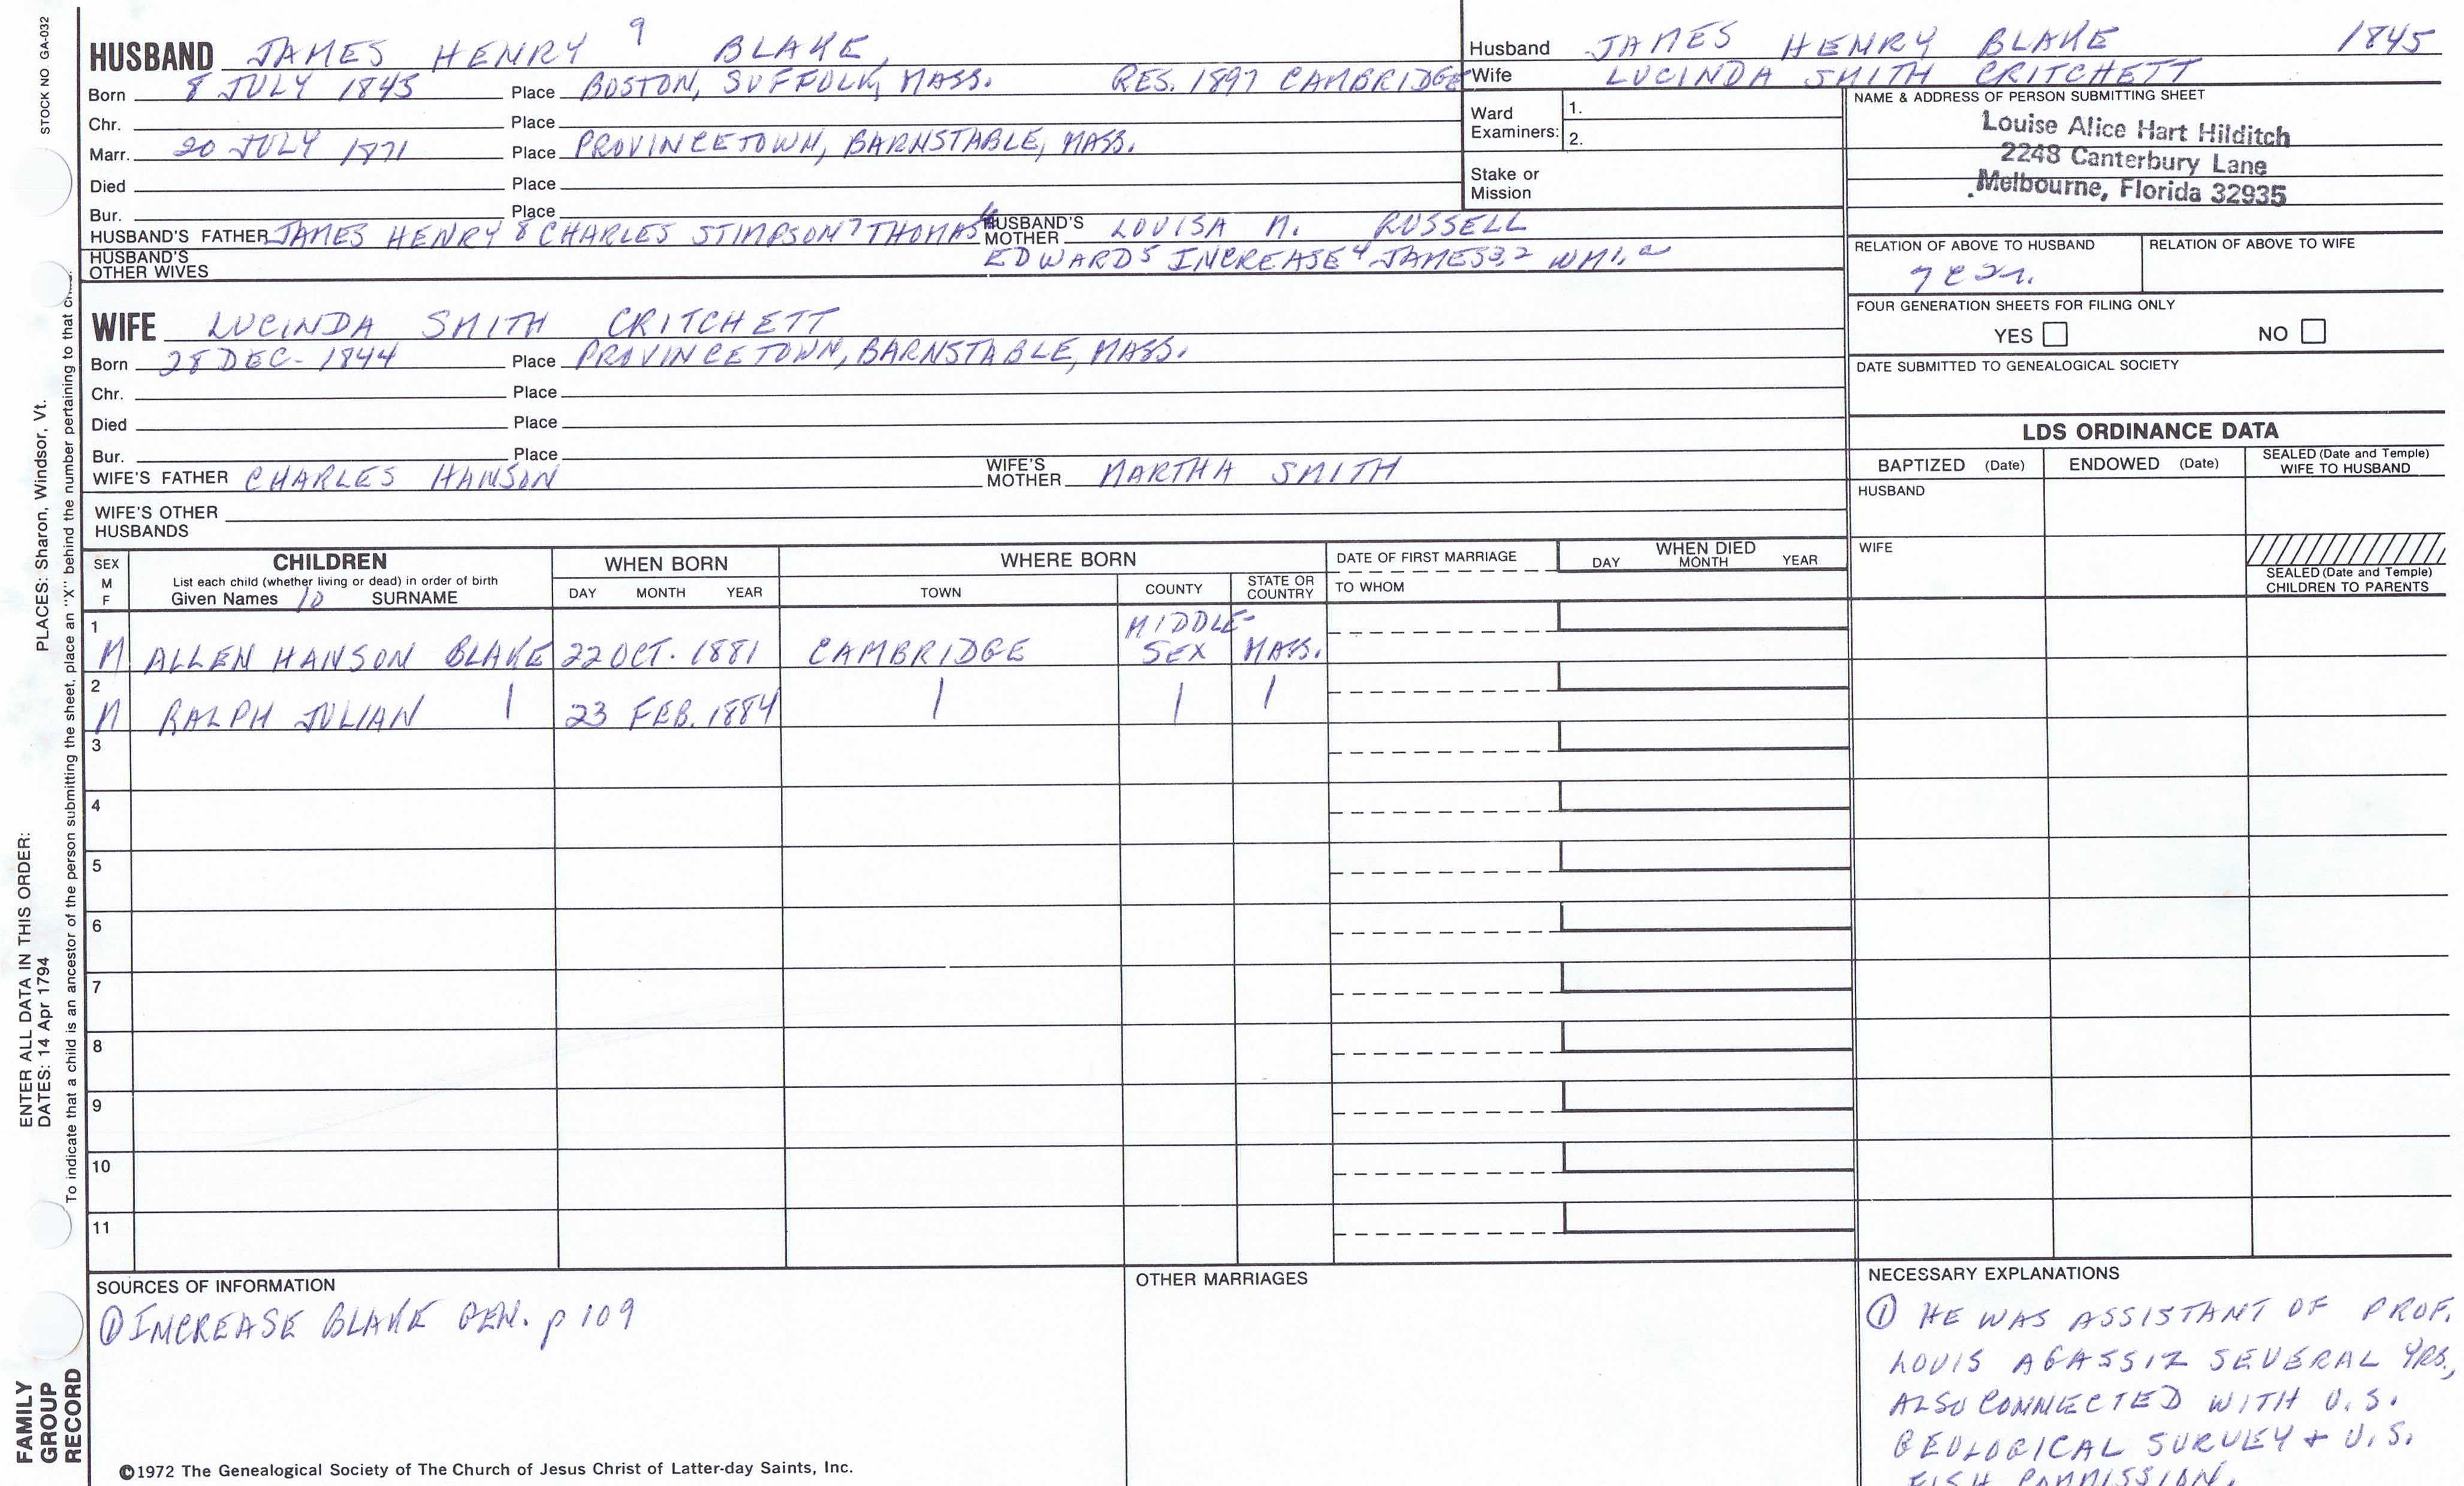 STOCK NO GA-032
HUSBAND JAMES HENRY 9 BLAKE,
Born 8 JULY 1845 Place BOSTON, SUFFOLK, MASS. RES. 1897 CAMBRIDGE
Chr. Place
Marr. 20 JULY 1871 Place PROVINCETOWN, BARNSTABLE, MASS.
Died Place
Bur. Place
HUSBAND'S FATHER JAMES HENRY 8 CHARLES STIMPSON 7 THOMAS 6 HUSBAND'S MOTHER LOUISA M. RUSSELL
HUSBAND'S OTHER WIVES EDWARD 5 INCREASE 4 JAMES 3,2 WM 1,
WIFE LUCINDA SMITH CRITCHETT
Born 28 DEC. 1844 Place PROVINCETOWN, BARNSTABLE, MASS.
Chr. Place
Died Place
Bur. Place
WIFE'S FATHER CHARLES HANSON WIFE'S MOTHER MARTHA SMITH
WIFE'S OTHER HUSBANDS
Husband JAMES HENRY BLAKE 1845
Wife LUCINDA SMITH CRITCHETT
Ward Examiners: 1.
2.
Stake or Mission
NAME & ADDRESS OF PERSON SUBMITTING SHEET
Louise Alice Hart Hilditch
2248 Canterbury Lane
Melbourne, Florida 32935
RELATION OF ABOVE TO HUSBAND RELATION OF ABOVE TO WIFE
FOUR GENERATION SHEETS FOR FILING ONLY
YES NO
DATE SUBMITTED TO GENEALOGICAL SOCIETY
LDS ORDINANCE DATA
BAPTIZED (Date) ENDOWED (Date) SEALED (Date and Temple) WIFE TO HUSBAND
HUSBAND
WIFE
SEALED (Date and Temple) CHILDREN TO PARENTS
SEX M F
CHILDREN
List each child (whether living or dead) in order of birth
Given Names 10 SURNAME
WHEN BORN
DAY MONTH YEAR
WHERE BORN
TOWN COUNTY STATE OR COUNTRY
DATE OF FIRST MARRIAGE
TO WHOM
WHEN DIED
DAY MONTH YEAR
1 M ALLEN HANSON BLAKE 22 OCT. 1881 CAMBRIDGE MIDDLE-SEX MASS.
2 M RALPH JULIAN | 23 FEB. 1884 | | |
3
4
5
6
7
8
9
10
11
SOURCES OF INFORMATION
① INCREASE BLAKE GEN. p 109
OTHER MARRIAGES
NECESSARY EXPLANATIONS
① HE WAS ASSISTANT OF PROF.
LOUIS AGASSIZ SEVERAL YRS,
ALSO CONNECTED WITH U.S.
GEOLOGICAL SURVEY + U.S.
FISH COMMISSION.
©1972 The Genealogical Society of The Church of Jesus Christ of Latter-day Saints, Inc.
FAMILY
GROUP
RECORD
ENTER ALL DATA IN THIS ORDER:
DATES: 14 Apr 1794 PLACES: Sharon, Windsor, Vt.
To indicate that a child is an ancestor of the person submitting the sheet, place an "X" behind the number pertaining to that